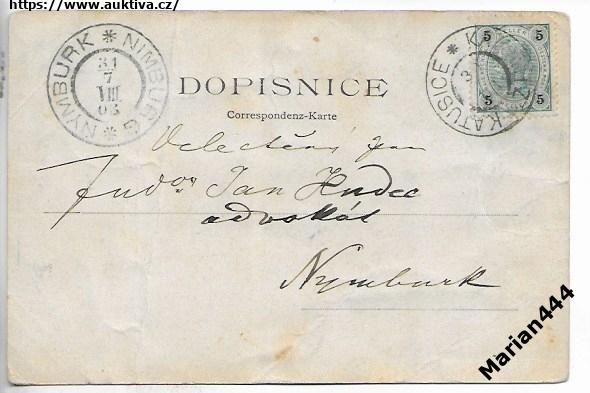 https://www.auktiva.cz/
NYMBURK * NIMBURG *
31
7
VIII
03
DOPISNICE
Correspondenz-Karte
KATUSICE *
5 5
5 5
Velectěný pan
Judor Jan Hudec
advokát
Nymburk
Marian444